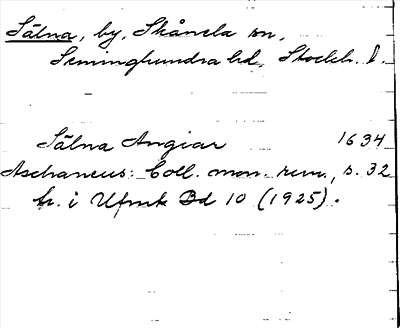 Sälna, by, Skånela sn,
Seminghundra hd, Stockh. l.
Sälna Angiar 1634
Aschaneus: Coll. mon. run., s. 32
tr. i Ufmt Bd 10 (1925).